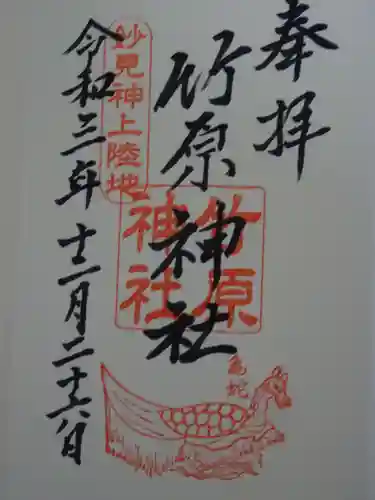 奉拝
竹原神社
竹原
神社
亀蛇
妙見神上陸地
令和三年十二月二十六日